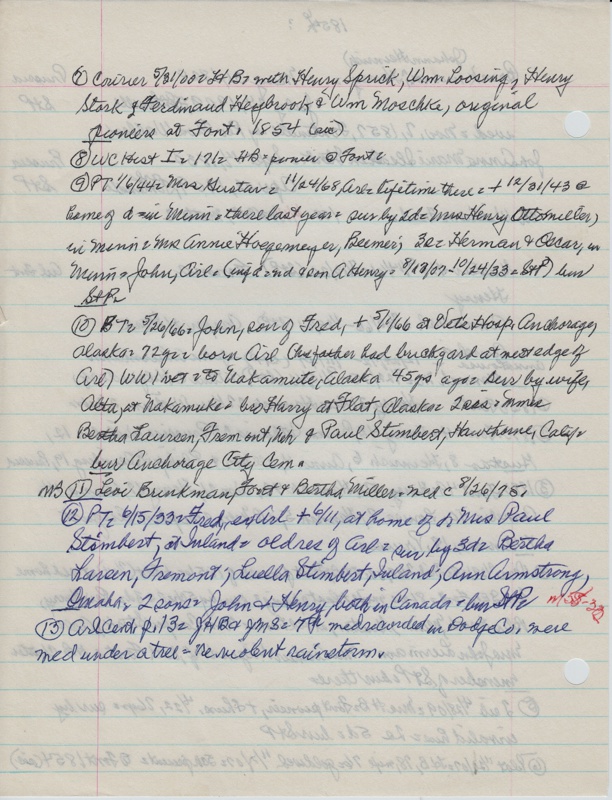 ⑦ Courier 5/31/00 = H B = with Henry Sprick, Wm Loosing, Henry
Stork & Ferdinand Heybrook & Wm Moschke, original
pioniers at Font, 1854 (sic)
⑧ WC Hist I = 171 = HB = pionier @ Font =
⑨ PT 1/6/44 = Mrs Gustav = 11/24/68, Arl = lifetime there = + 12/31/43 @
home of d = in Minn = there last year = sur by 2d = Mrs Henry Ottomiller,
in Minn = Mrs Annie Hoegemeyer, Beemer; 3s = Herman & Oscar, in
Minn = John, Arl = (inf d = nd & son A Henry = 8/13/07-10/24/33 = StP) bur
StP =
⑩ BT = 5/26/66 = John, son of Fred, + 5/1/66 at Vets Hosp, Anchorage,
Alaska = 72 yr = born Arl (his father had brickyard at west edge of
Arl) WW1 vet = to Nakamute, Alaska 45 ys ago = sur by wife,
at Nakamuke = bro Harry at Flat, Alaska = 2 sis = Mmes
Bertha Laursen, Fremont, Neb & Paul Stimbert, Hawthorne, Calif =
bur Anchorage City Cem.
NB ⑪ Levi Brunkman, Font & Bertha Miller = med c 8/26/75.
⑫ PT = 6/15/33 = Fred, ex Arl + 6/11, at home of d, Mrs Paul
Stimbert, at Inland = old res of Arl = sur by 3d = Bertha
Larsen, Fremont; Luella Stimbert, Inland; Ann Armstrong,
Omaha, 2 sons = John & Henry, both in Canada = bur StP =
⑬ Arl Cent, p. 13 =  med recorded in Dodge Co, were
med under a tree = violent rainstorm.